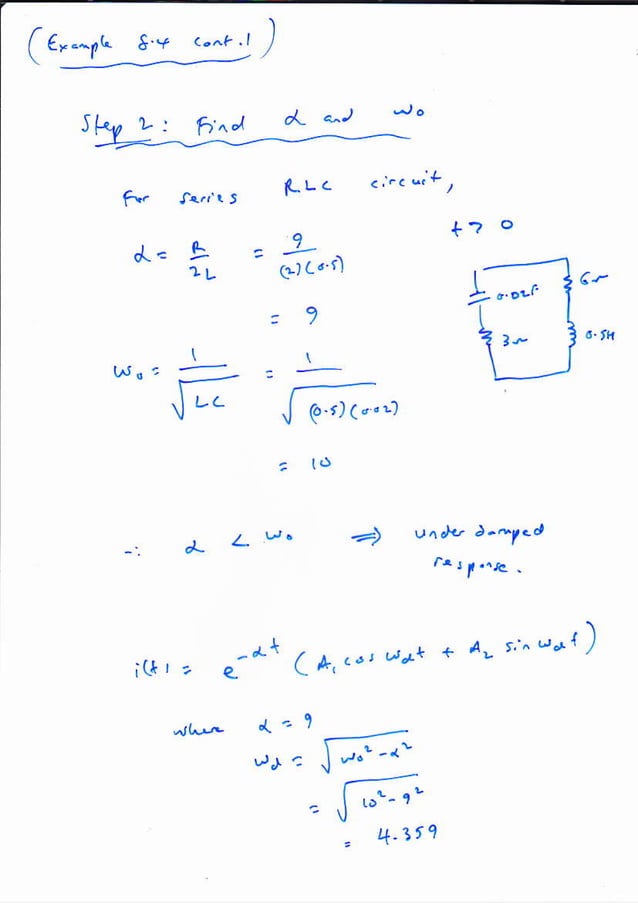 (Example 8.4 cont.)
Step 2: Find α and ω₀
For series RLC circuit,
t > 0
α = R/2L = 9/(2)(0.5)
0.02F
6Ω
3Ω
0.5H
= 9
ω₀ = 1/√LC = 1/√(0.5)(0.02)
= 10
∴ α < ω₀ ⇒ underdamped
response.
i(t) = e^-αt (A₁ cos ωdt + A₂ sin ωdt)
where α = 9
ωd = √ω₀² - α²
= √10² - 9²
= 4.359